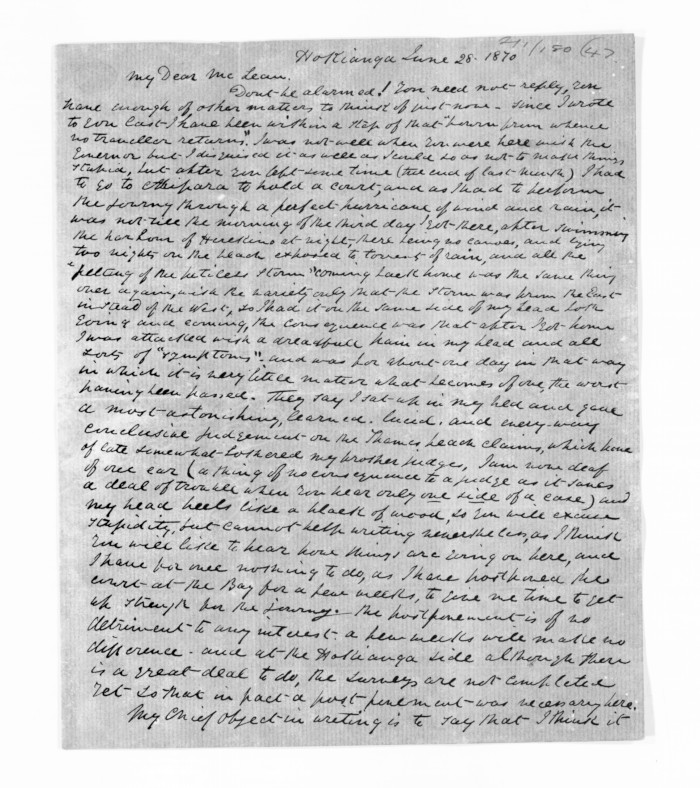 Hokianga June 28. 1870
My Dear Mc Lean.
Don't be alarmed! You need not reply, you
have enough of other matters to think of just now - since I wrote
to you last I have been within a step of that "bourn from whence
no traveller returns". I was not well when you were here with the
Governor but I disguised it as well as I could so as not to make things
stupid, but after you left some time (the end of last month) I had
to go to Ahipara to hold a court, and as I had to perform
the journey through a perfect hurricane of wind and rain, it
was not till the morning of the third day I got there, after swimming
the harbour of Herekino at night, there being no canoes, and lying
two nights on the beach exposed to torrents of rain, and all the
"pelting of the pitiless storm" coming back home was the same thing
over again, with the variety only that the storm was from the East
instead of the West, so I had it on the same side of my head both
going and coming, the consequence was that after I got home
I was attacked with a dreadfull pain in my head and all
sorts of "symptoms". and was for about one day in that way
in which it is very little matter what becomes of one, the worst
having been passed. They say I sat up in my bed and gave
a most astonishing, learned. lucid. and every way
conclusive judgement on the Thames beach claims, which have
of late somewhat bothered my brother judges, I am now deaf
of one ear (a thing of no consequence to a judge as it saves
a deal of trouble when you hear only one side of a case) and
my head feels like a block of wood, so you will excuse
stupidity, but cannot help writing nevertheless, as I think
you will like to hear how things are going on here, and
I have for once nothing to do, as I have postponed the
court at the Bay for a few weeks, to give me time to get
up strength for the journey. the postponement is of no
detriment to any interest. a few weeks will make no
difference. and at the Hokianga side although there
is a great deal to do, the surveys are not completed
yet so that in fact a postponement was necessary here.
My Chief object in writing is to say that I think it